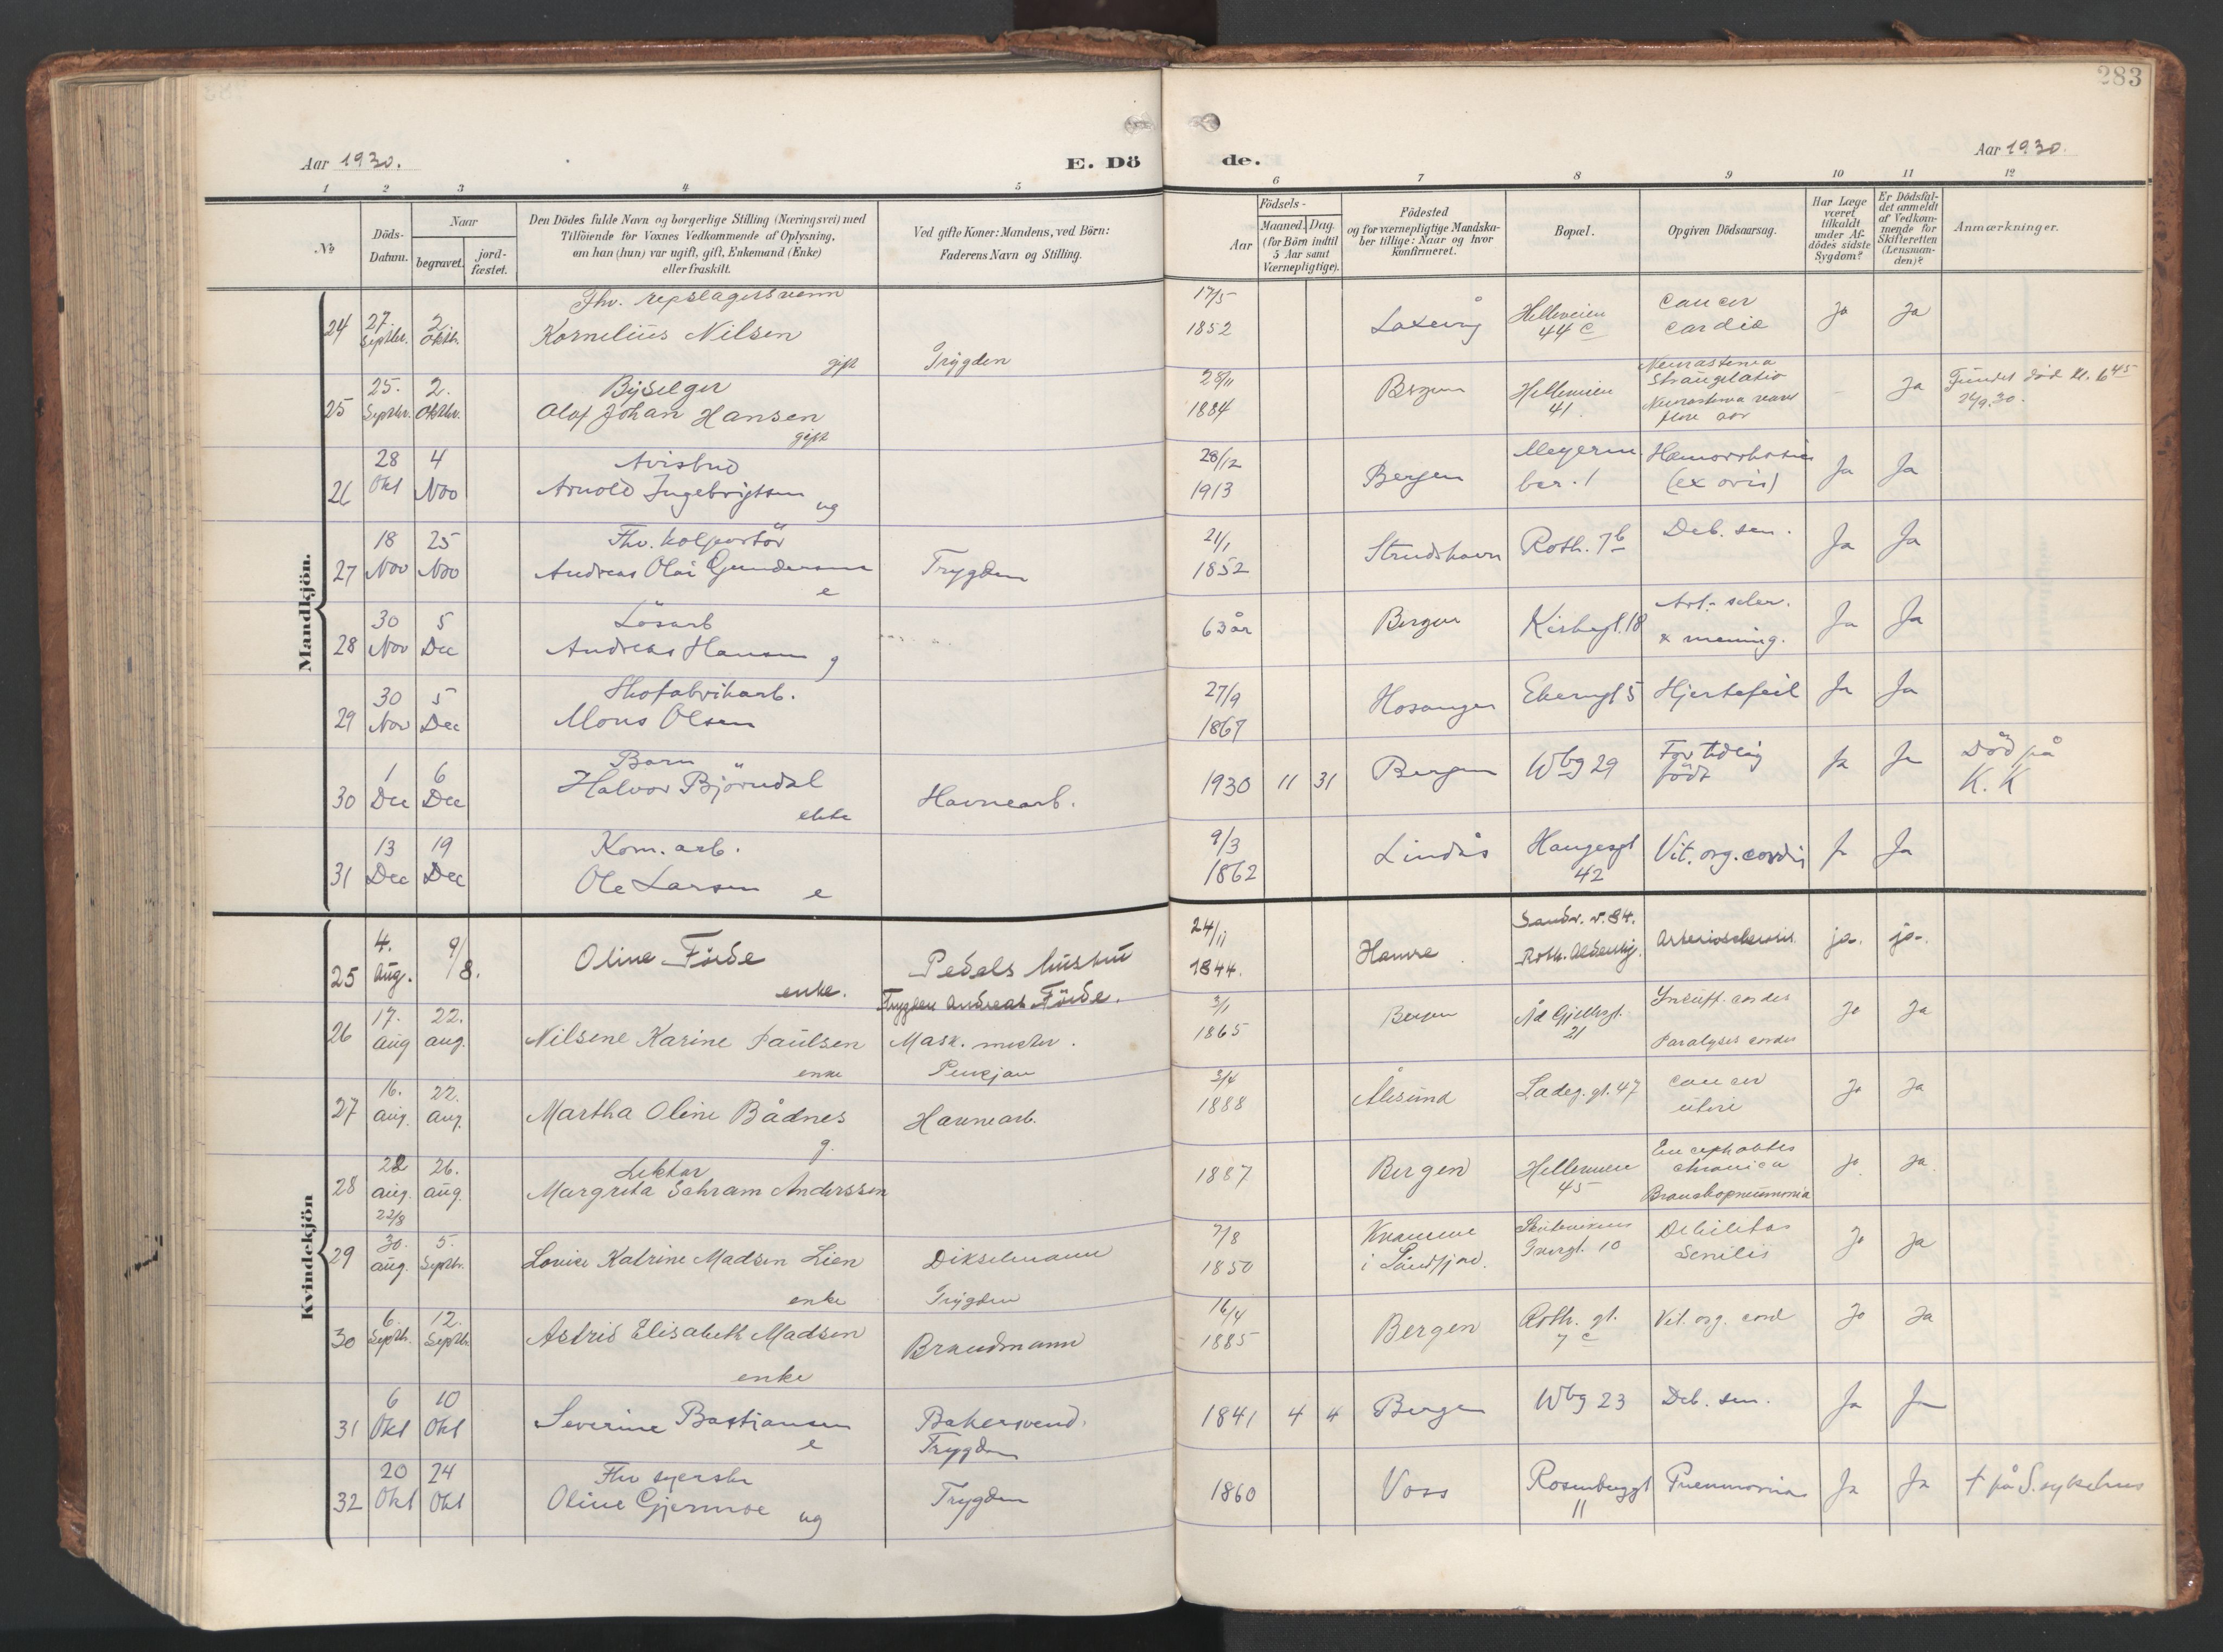 283
Aar 1930.
E. Dö
de.
Aar 1930.
1 2 3 4 5 6 7 8 9 10 11 12
No
Döds-Datum.
Naar
begravet.
jord-fæstet.
Den Dödes fulde Navn og borgerlige Stilling (Næringsvei) med
Tilföiende for Voxnes Vedkommende af Oplysning,
om han (hun) var ugift, gift, Enkemand (Enke)
eller fraskilt.
Ved gifte Koner: Mandens, ved Börn:
Faderens Navn og Stilling.
Födsels-
Aar
Maaned. Dag.
(for Börn indtil
5 Aar samt
Værnepligtige).
Födested
og for værnepligtige Mandska-
ber tillige: Naar og hvor
Konfirmeret.
Bopæl.
Opgiven Dödsaarsag.
Har Læge
været
tilkaldt
under Af-
dödes sidste
Sygdom?
Er Dödsfal-
det anmeldt
af Vedkom-
mende for
Skifteretten
(Lensman-
den)?
Anmærkninger.
Mandkjön.
24 27. Septbr. 2. Oktbr. Fhv. repslagersvenn
Kornelius Nilsen gift Trygden 17/5 1852 Helleveien 44 c cancer cardia ja ja
25 25. Septbr. 2. Oktbr. Byselger
Olaf Johan Hansen gift 28/11 1884 Bergen Helleveien 41 Neurastenia
Strangulatio
Neurastenia
flere aar – ja Fundet död kl. 6 45
26 28 Okt 4 Nov Avisbud
Arnold Ingebrigtsen ug 28/12 1913 Bergen ber. 1 (ex oris) Ja Ja
27 18 Nov 25 Nov Fhv. kolportör
Andreas Olai Gundersen e Trygden 21/1 1852 Strudshavn Roth. 7b Deb. sen. Ja Ja
28 30 Nov 5 Dec Lösarb
Andreas Hansen g 63 år Bergen 18 Art. scler. Ja Ja
29 30 Nov 5 Dec Skofabrikarb.
Mons Olsen 27/9 1867 Hosanger 5 Hjertefeil Ja Ja
30 1 Dec 6 Dec Barn
Halvor Björndal ekte Havnearb. 1930 11 31 Bergen Wbg 29 For tidlig
födt Ja Ja Död på
K. K
31 13 Dec 19 Dec Kom. arb.
Ole Larsen e 9/3 1862 Lindås Haugesgt 42 Vit. org. cordis Ja Ja
Kvindekjön
25 4. Aug. 9/8. Oline Förde enke. Pedels hustru
Trygden Andreas Förde. 24/11 1844. Hamre Sandv. v. 84. Arteriosclerosis ja. ja.
26 17. aug 22. aug. Nilsene Karine Paulsen enke Mask. mester.
Pensjon 3/1 1865 Bergen Ad Gjellesgt. 21 Insuff. cordis
Paralysis cordis ja ja
27 16. aug. 22. aug. Martha Oline Bådnes g. Havnearb. 3/4 1888 Ålesund Ladeg. gt. 47 cancer
uteri ja ja
28 22 aug. 22/8 26. aug. Lektor
Margreta Sahram Anderssen 1887 Bergen Helleveien 45 Encephalitis
chronica
Bronchopneumonia ja ja.
29 30. aug. 5. Septbr. Louise Katrine Madsen Lien enke Dikselmann
Trygden 7/8 1850 i Sundfjord. 10 Debilitas
Senilis ja ja
30 6. Septb. 12. Septbr. Astrid Elisabeth Madsen enke Brandmann 16/4 1885 Bergen Roth. gt. 7 c Vit. org. cord ja ja
31 6 Okt 10 Okt Severine Bastiansen e Bakersvend.
Trygden 1841 4 4 Bergen Wbg 23 Deb. sen. Ja Ja
32 20 Okt 24 Okt Fhv syerske
Oline Gjermoe ug Trygden 1860 Voss Rosenberggt 11 Pneumonia Ja Ja † på S. sykehus